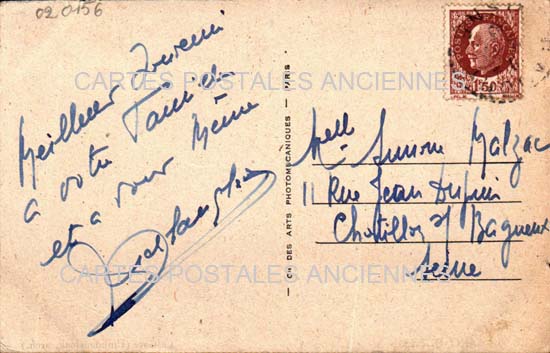 020156
Meilleur Souvenir
a votre Famille
et a vous Même
CARTES POSTALES ANCIENNES
CIE DES ARTS PHOTOMECANIQUES — PARIS
1F50
Melle Simone Malzac
11 Rue Jean Dupuis
Chatillon s/ Bagneux
Seine
CARTES POSTALES ANCIENNES